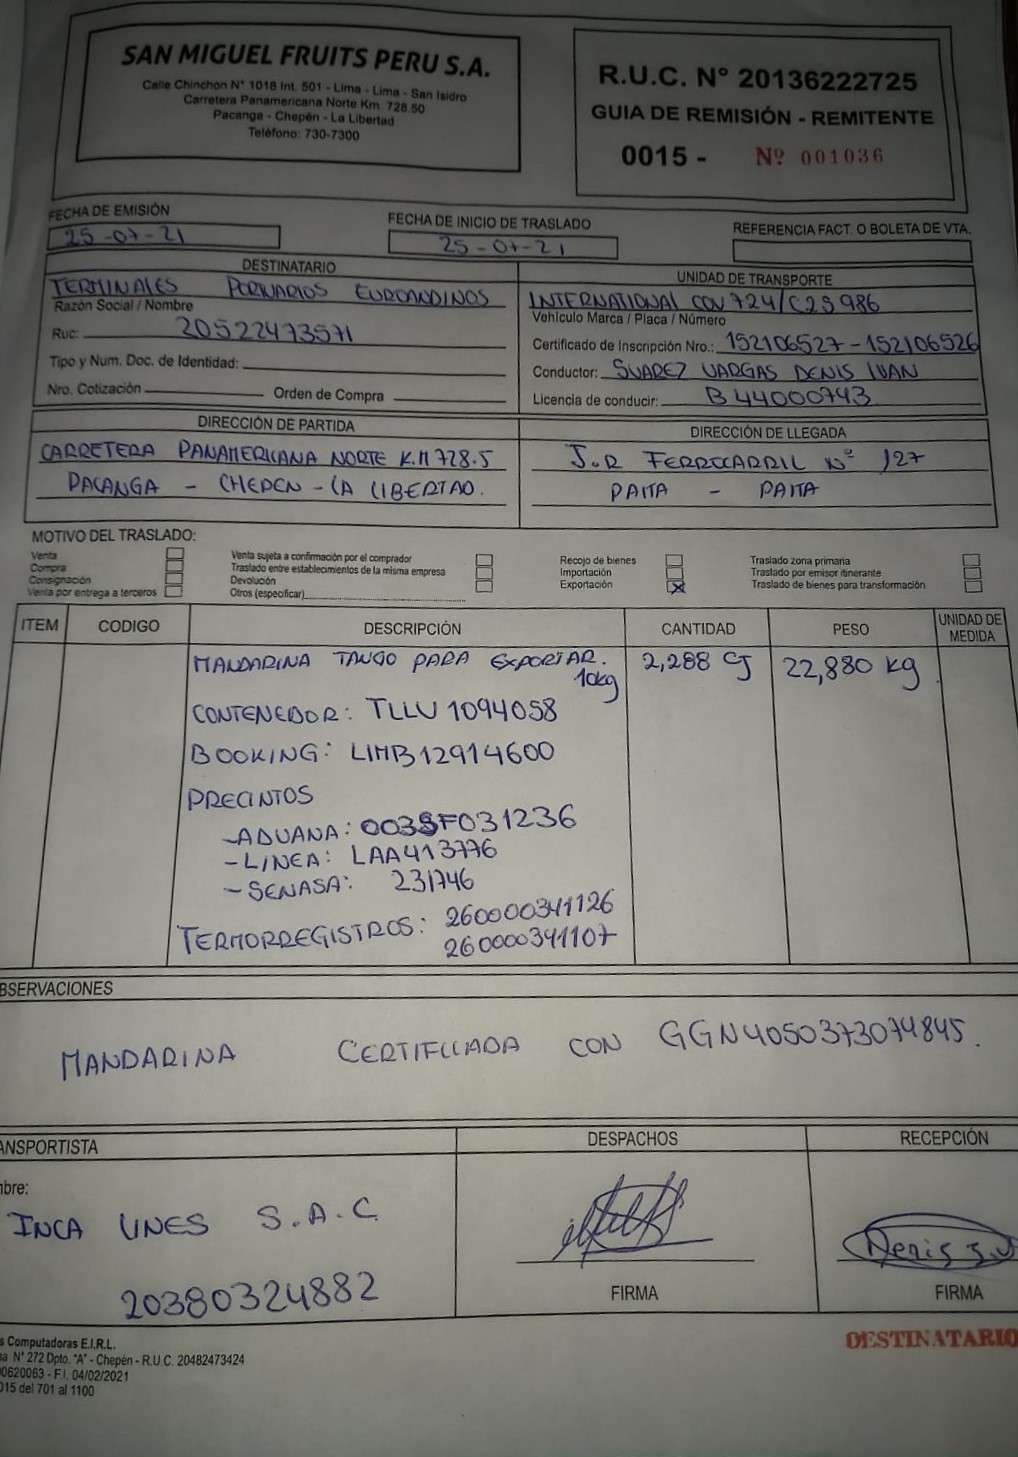 SAN MIGUEL FRUITS PERU S.A.
Calle Chinchon N° 1018 Int. 501 - Lima - Lima - San Isidro
Carretera Panamericana Norte Km. 728.50
Pacanga - Chepén - La Libertad
Teléfono: 730-7300
R.U.C. N° 20136222725
GUIA DE REMISIÓN - REMITENTE
0015 - Nº 001036
FECHA DE EMISIÓN
25-07-21
FECHA DE INICIO DE TRASLADO
25-07-21
REFERENCIA FACT. O BOLETA DE VTA.
DESTINATARIO
TERMINALES PORUARIOS EUROANDINOS
Razón Social / Nombre
Ruc: 20522473571
Tipo y Num. Doc. de Identidad:
Nro. Cotización Orden de Compra
UNIDAD DE TRANSPORTE
INTERNATIONAL COV 724/C2S986
Vehículo Marca / Placa / Número
Certificado de Inscripción Nro.: 152106527-152106526
Conductor: SUAREZ VARGAS DENIS IVAN
Licencia de conducir: B44000743
DIRECCIÓN DE PARTIDA
CARRETERA PANAMERICANA NORTE K.M 728.5
PACANGA - CHEPEN - LA LIBERTAD.
DIRECCIÓN DE LLEGADA
J.R FERROCARRIL Nº 127
PAITA - PAITA
MOTIVO DEL TRASLADO:
Venta
Compra
Consignación
Venta por entrega a terceros
Venta sujeta a confirmación por el comprador
Traslado entre establecimientos de la misma empresa
Devolución
Otros (especificar)
Recojo de bienes
Importación
Exportación X
Traslado zona primaria
Traslado por emisor itinerante
Traslado de bienes para transformación
ITEM CODIGO DESCRIPCIÓN CANTIDAD PESO UNIDAD DE MEDIDA
MANDARINA TANGO PARA EXPORTAR. 2,288 CJ 22,880 kg
10kg
CONTENEDOR: TLLU 1094058
BOOKING: LIMB12914600
PRECINTOS
-ADUANA: 003SF031236
-LINEA: LAA413776
-SENASA: 231746
TERMORREGISTROS: 260000341126
260000341107
BSERVACIONES
MANDARINA CERTIFICADA CON GGN4050373074845.
ANSPORTISTA
mbre:
INCA LINES S.A.C
20380324882
DESPACHOS
FIRMA
RECEPCIÓN
Denis S.V
FIRMA
DESTINATARIO
s Computadoras E.I.R.L.
a N° 272 Dpto. "A" - Chepén - R.U.C. 20482473424
00620063 - F.I. 04/02/2021
015 del 701 al 1100